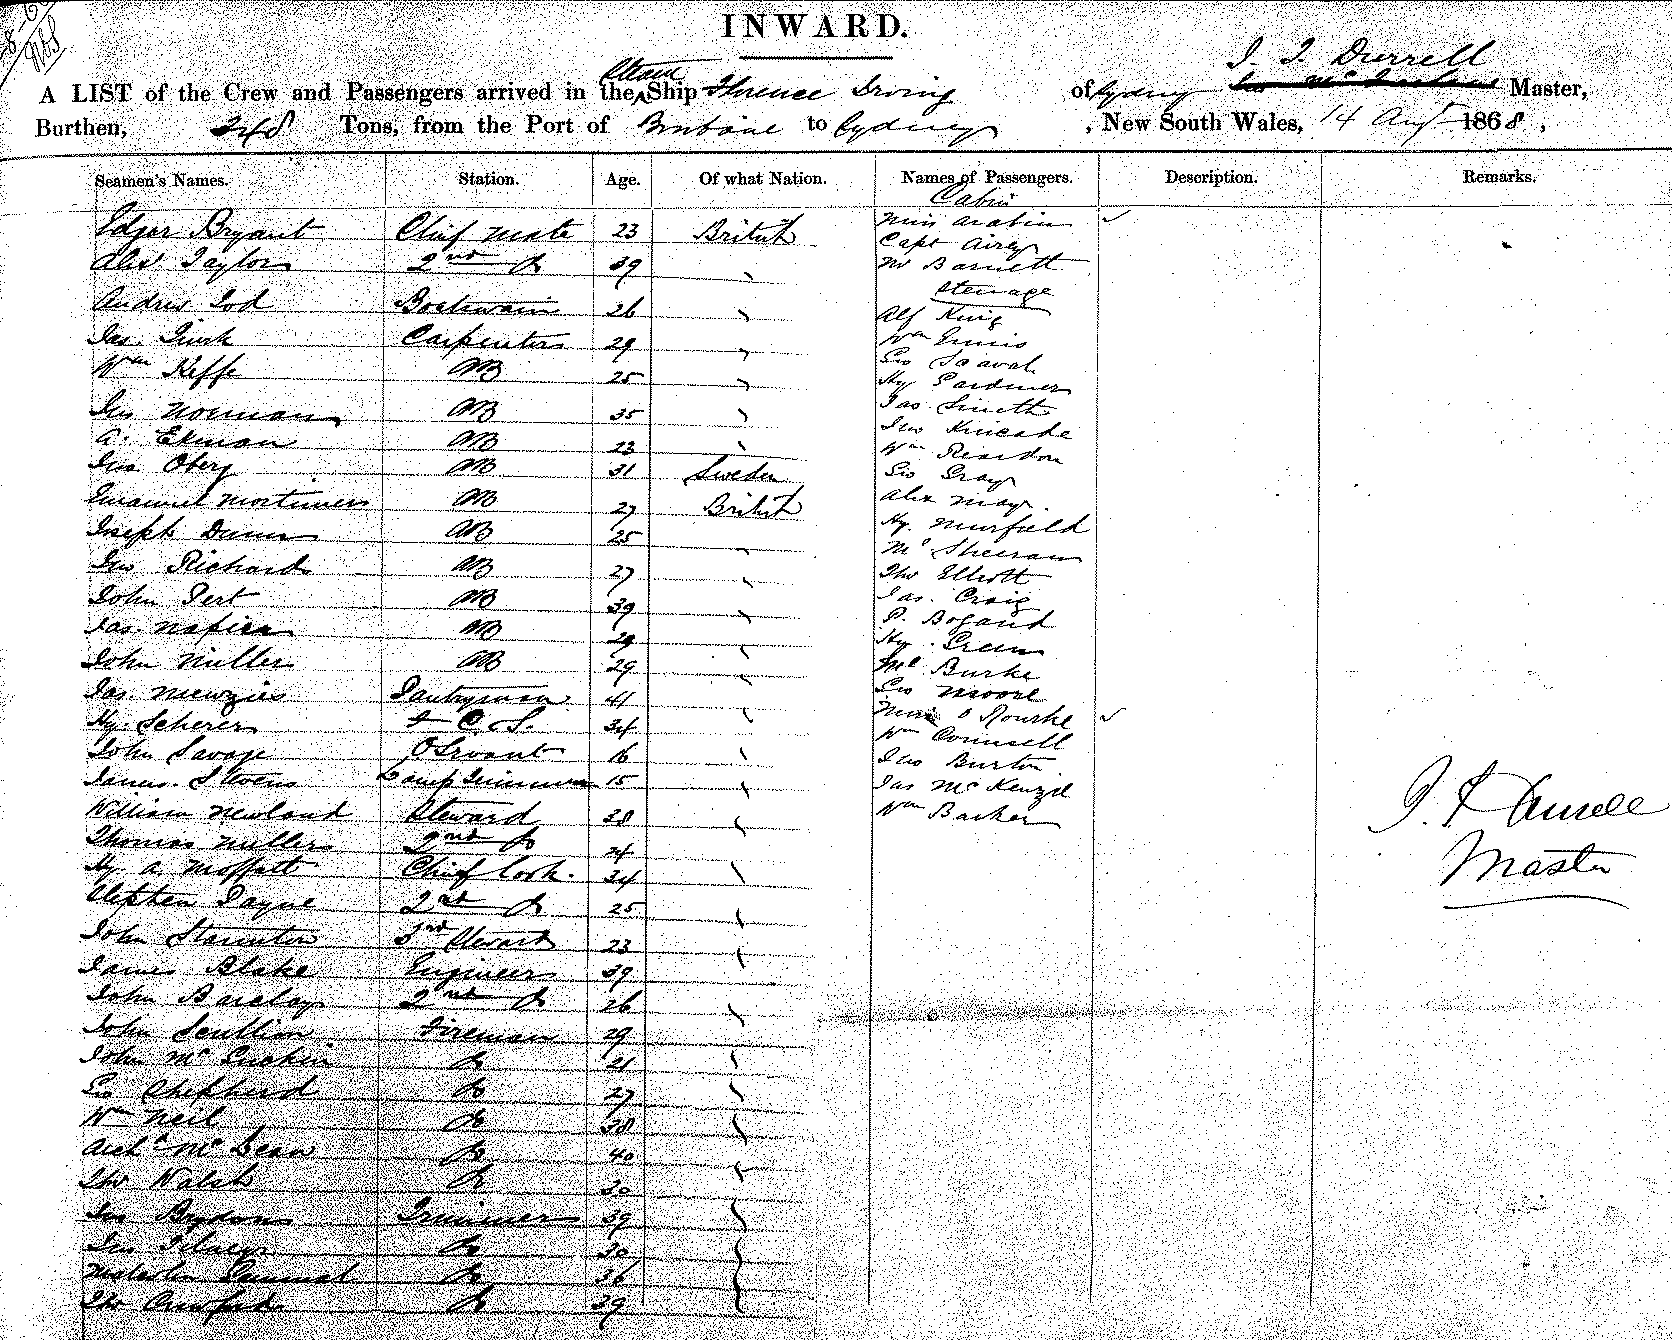 INWARD.
J. F. Durrell
A LIST of the Crew and Passengers arrived in the Steam Ship Florence Irving of Sydney Master,
Burthen, 248 Tons, from the Port of Brisbane to Sydney , New South Wales, 14 Augt 1868 ,
Seamen's Names. Station. Age. Of what Nation. Names of Passengers. Description. Remarks.
Cabin
Edgar Bryant Chief Mate 23 British Miss Arabin
Capt Airey
Alex Taylor 2nd Do 39 " Mr Barnett
Steerage
Andrew Tod Boatswain 26 " Alf King
Jas. Carpenter 29 " Wm Ennis
Wm Keffe AB 25 " Geo
Hy Gardiner
Jno Norman AB 35 " Jas Smith
A. Ekman AB 23 " Jno Kincade
Wm Reardon
Jno Oberg AB 31 Sweden Geo Gray
Emanuel Mortimer AB 27 British Alex May
Hy. Muirfield
Joseph Dunn AB 25 " Mc Sheeran
Jno Richards AB 27 " Tho Elliott
John Pert AB 39 " Jas. Craig
P. Bogand
Jas. Napier AB 29 " Hy. Green
John Miller AB 29 " Ml Burke
Jas. Menzies Pantryman 41 " Geo Moore
Hy. Scherer F. C. S. 34 " O Rourke
John Savage O Servant 16 " Wm Counsell
Jno Burton
James Stevens Lamp Trimmer 15 " Jas McKenzie
William Newland Steward 38 " Wm Barker
J. F. Durrell
Thomas Millers 2nd Do 24
Master
Hy A Moffatt Chief Cook. 34 "
Stephen Payne 2nd Do 25 "
John Staunton 3rd Steward 23 "
James Blake Engineer 39
John Barclay 2nd Do 26 "
John Scullion Fireman 29
John McGuckin Do 21 "
Geo Shepherd Do 27 "
Wm Neil Do 38 "
Archd McBean Do 40 "
Tho Walsh Do 30
Jno Trimmer 39 "
Jno Do 30 "
Do 36 "
Tho Crawford Do 39 "